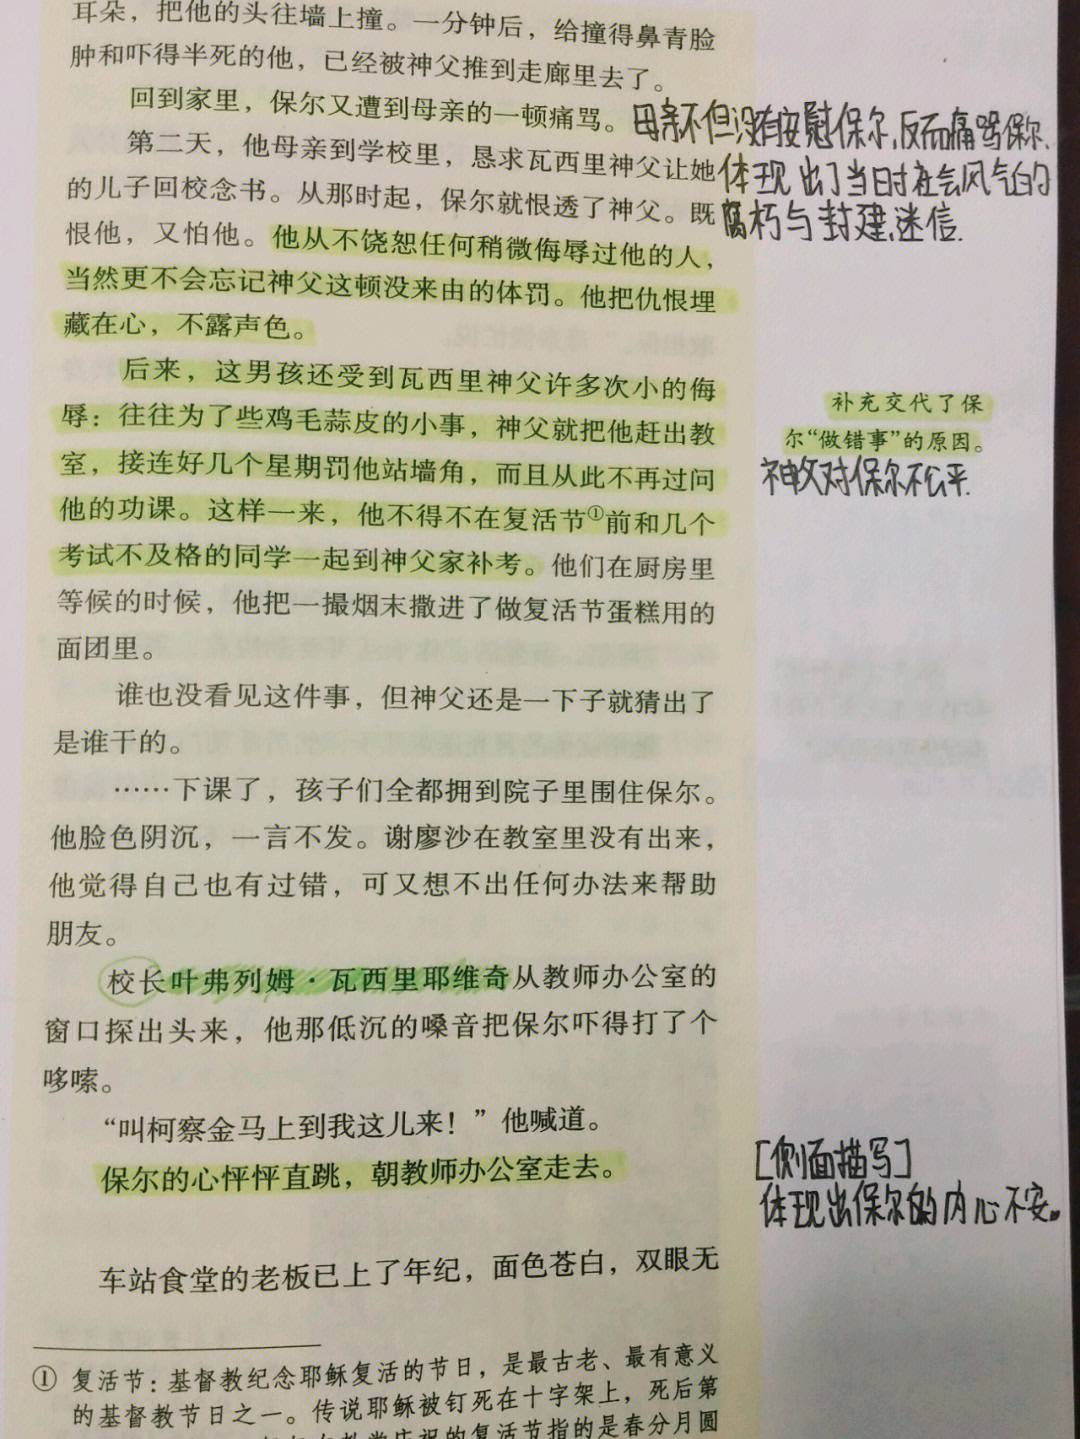 耳朵，把他的头往墙上撞。一分钟后，给撞得鼻青脸
肿和吓得半死的他，已经被神父推到走廊里去了。
回到家里，保尔又遭到母亲的一顿痛骂。
母亲不但没有安慰保尔，反而痛骂保尔，
第二天，他母亲到学校里，恳求瓦西里神父让她
体现出了当日时社会风气的
的儿子回校念书。从那时起，保尔就恨透了神父。既
腐朽与封建迷信.
恨他，又怕他。他从不饶恕任何稍微侮辱过他的人，
当然更不会忘记神父这顿没来由的体罚。他把仇恨埋
藏在心，不露声色。
后来，这男孩还受到瓦西里神父许多次小的侮
辱：往往为了些鸡毛蒜皮的小事，神父就把他赶出教
室，接连好几个星期罚他站墙角，而且从此不再过问
他的功课。这样一来，他不得不在复活节①前和几个
考试不及格的同学一起到神父家补考。他们在厨房里
等候的时候，他把一撮烟末撒进了做复活节蛋糕用的
面团里。
补充交代了保
尔“做错事”的原因。
神父对保尔不公平.
谁也没看见这件事，但神父还是一下子就猜出了
是谁干的。
……下课了，孩子们全都拥到院子里围住保尔。
他脸色阴沉，一言不发。谢廖沙在教室里没有出来，
他觉得自己也有过错，可又想不出任何办法来帮助
朋友。
校长叶弗列姆·瓦西里耶维奇从教师办公室的
窗口探出头来，他那低沉的嗓音把保尔吓得打了个
哆嗦。
“叫柯察金马上到我这儿来！”他喊道。
保尔的心怦怦直跳，朝教师办公室走去。
[侧面描写]
体现出保尔的内心不安。
车站食堂的老板已上了年纪，面色苍白，双眼无
① 复活节：基督教纪念耶稣复活的节日，是最古老、最有意义
的基督教节日之一。传说耶稣被钉死在十字架上，死后第
教堂庆祝的复活节指的是春分月圆